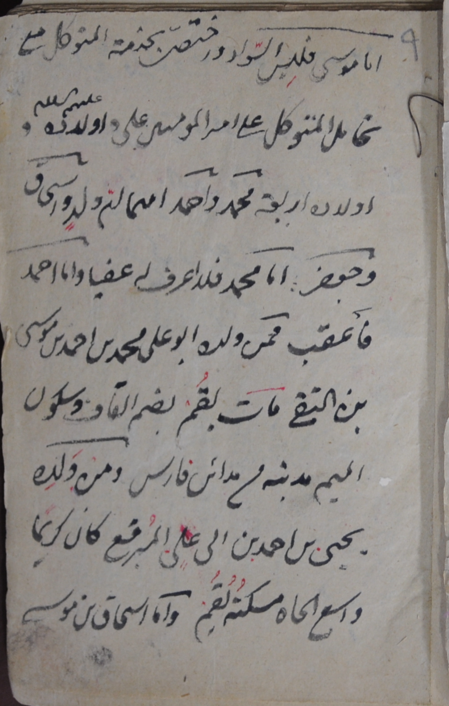 اما موسى فلبس السواد واختص بخدمة المتوكل مع
تحامل المتوكل على امير المومنين على و اولاده عليهم السلام و
اولاده اربعة محمد واحمد امهما ام ولد واسحاق
وجعفر اما محمد فلا اعرف له عقبا واما احمد
فأعقب فمن ولده ابو على محمد بن احمد بن موسى
بن التقى مات بقُم بضم القاف وسكون
الميم مدينه من مدائن فارس ومن وَلَدِه
يحيى بن احمد بن ابى على المُبرقع كان كريما
واسع الجاه مسكنه بقُم واما اسحاق بن موسى